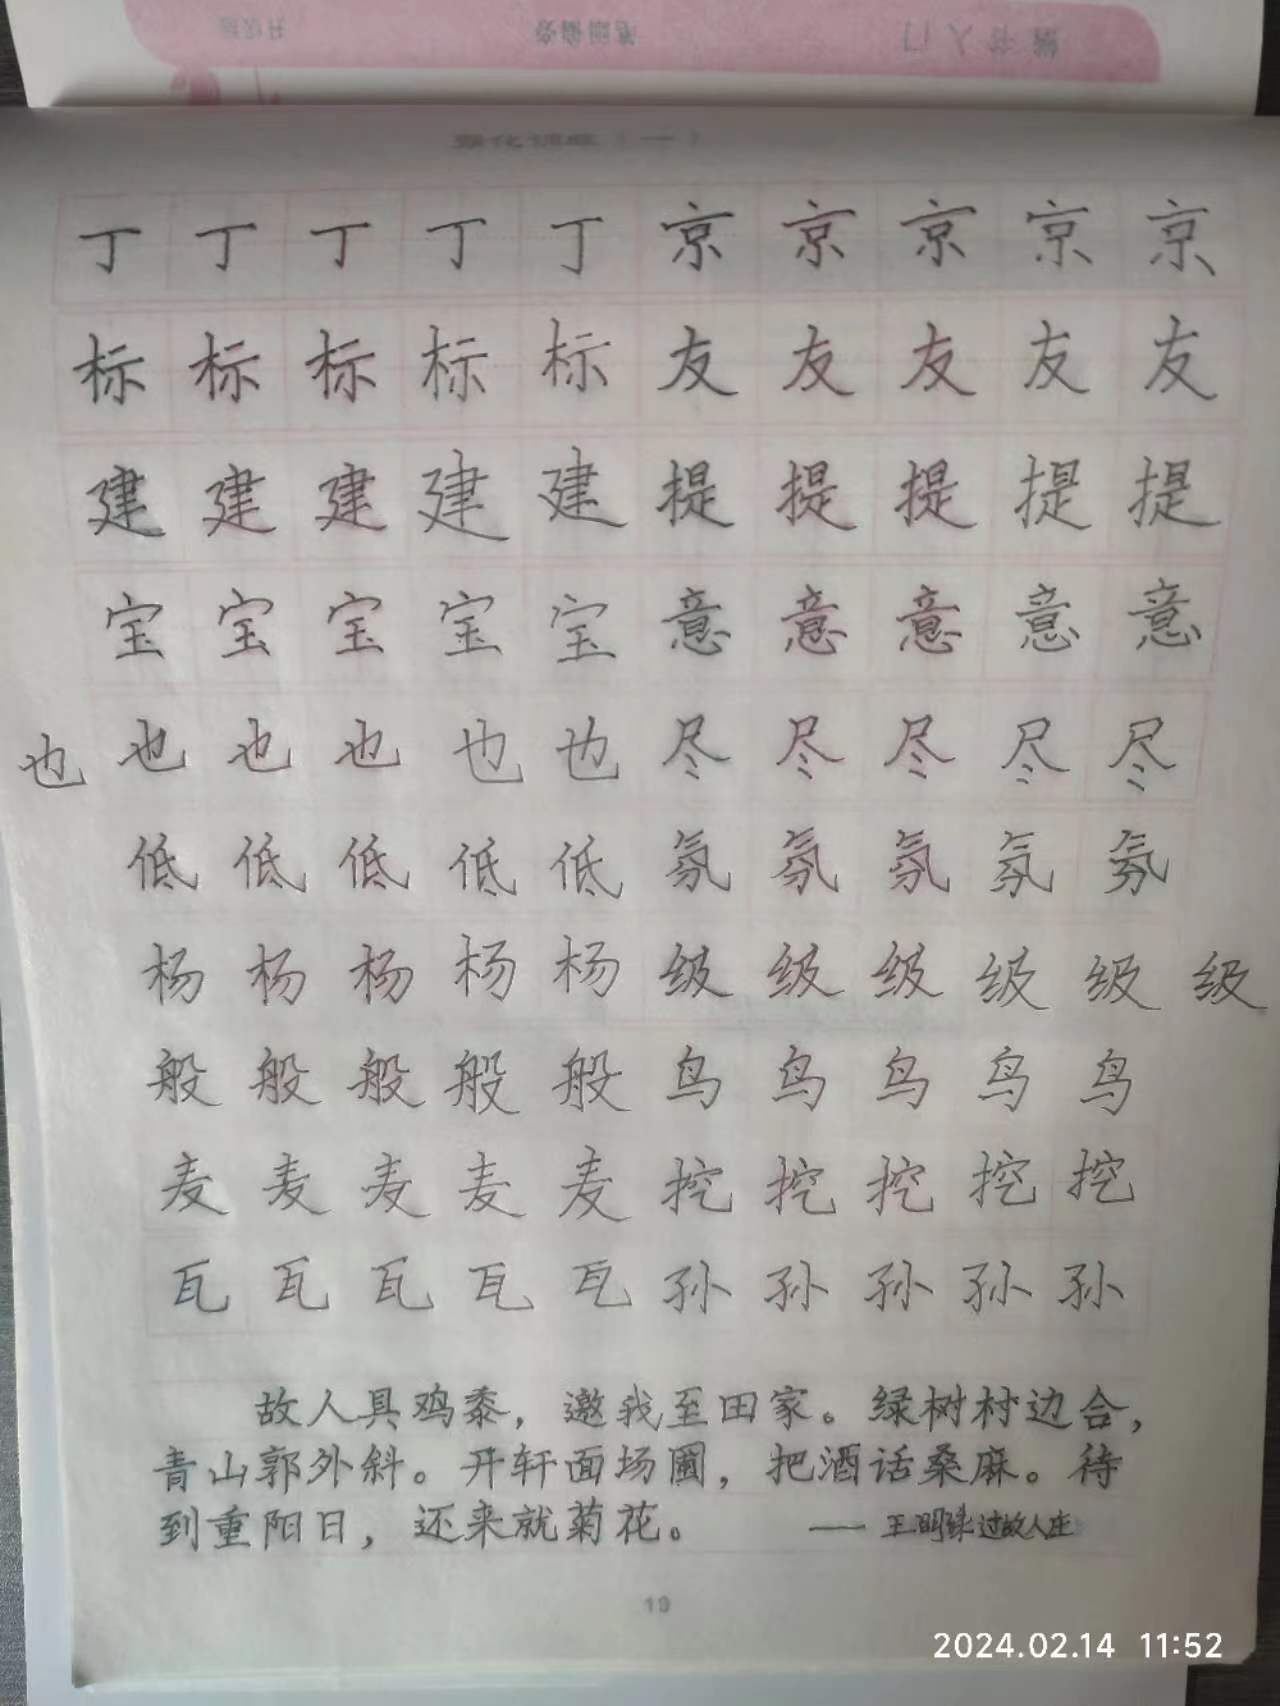 丁丁丁丁丁京京京京京
标标标标标友友友友友
建建建建建提提提提提
宝宝宝宝宝意意意意意
也也也也也也尽尽尽尽尽
低低低低低氛氛氛氛氛
杨杨杨杨杨级级级级级级
般般般般般鸟鸟鸟鸟鸟
麦麦麦麦麦挖挖挖挖挖
瓦瓦瓦瓦瓦孙孙孙孙孙
故人具鸡黍，邀我至田家。绿树村边合，
青山郭外斜。开轩面场圃，把酒话桑麻。待
到重阳日，还来就菊花。 —— 王明珠过故人庄
19
2024.02.14 11:52